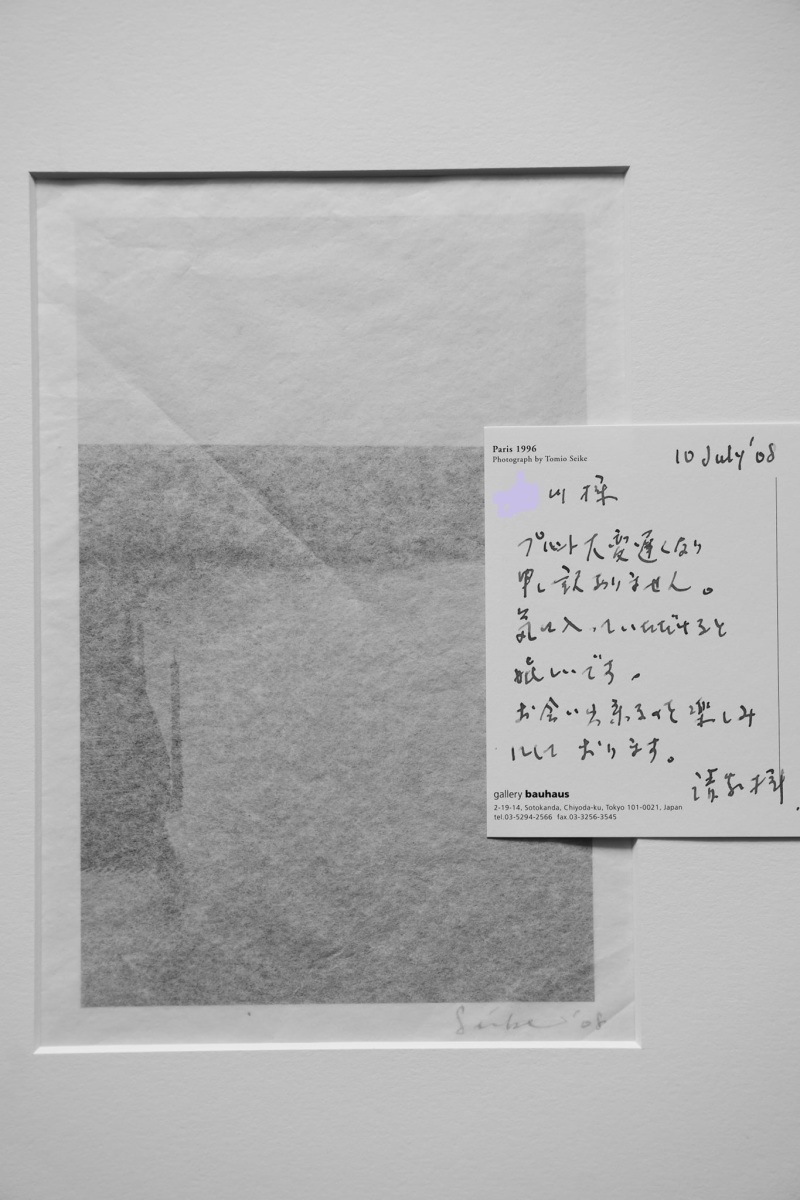 Paris 1996
Photograph by Tomio Seike
10 July '08
川様
プリント大変遅くなり
申し訳ありません。
気に入っていただけると
嬉しいです。
お会い出来るのを楽しみ
にして おります。
清家冨夫
gallery bauhaus
2-19-14, Sotokanda, Chiyoda-ku, Tokyo 101-0021, Japan
tel.03-5294-2566 fax.03-3256-3545
Seike '08